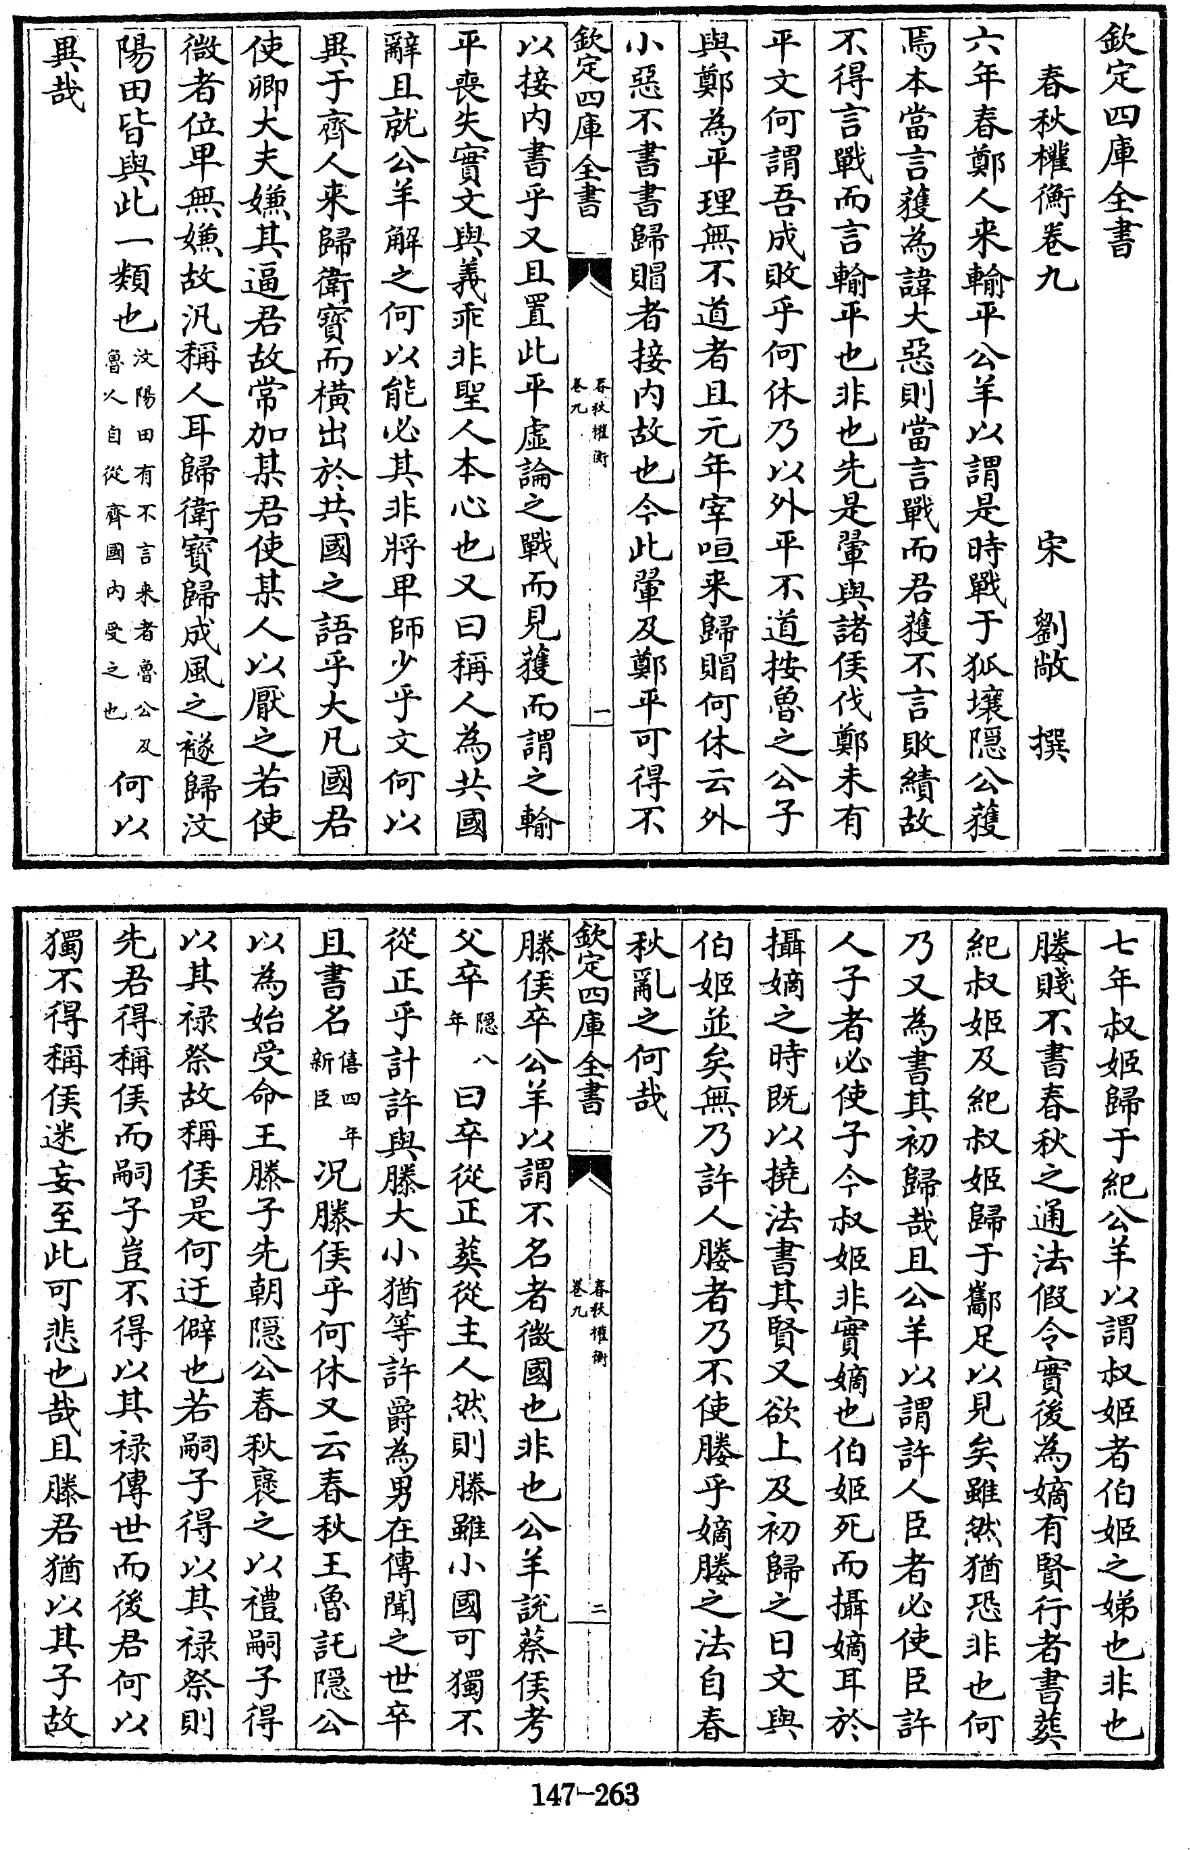 欽定四庫全書
春秋權衡卷九
宋 劉敞 撰
六年春鄭人来輸平公羊以謂是時戰于狐壤隠公獲
焉本當言獲為諱大惡則當言戰而君獲不言敗績故
不得言戰而言輸平也非也先是翬與諸侯伐鄭未有
平文何謂吾成敗乎何休乃以外平不道按魯之公子
與鄭為平理無不道者且元年宰咺来歸賵何休云外
小惡不書書歸賵者接内故也今此翬及鄭平可得不
欽定四庫全書
春秋權衡
卷九
一
以接内書乎又且置此平虚論之戰而見獲而謂之輸
平喪失實文與義乖非聖人本心也又曰稱人為共國
辭且就公羊解之何以能必其非將卑師少乎文何以
異于齊人来歸衛寶而横出於共國之語乎大凡國君
使卿大夫嫌其逼君故常加某君使某人以厭之若使
微者位卑無嫌故汎稱人耳歸衛寳歸成風之襚歸汶
陽田皆與此一類也汶陽田有不言来者魯公及
魯人自從齊國内受之也何以
異哉
七年叔姬歸于紀公羊以謂叔姬者伯姬之娣也非也
媵賤不書春秋之通法假令實後為嫡有賢行者書葬
紀叔姬及紀叔姬歸于酅足以見矣雖然猶恐非也何
乃又為書其初歸哉且公羊以謂許人臣者必使臣許
人子者必使子今叔姬非實嫡也伯姬死而攝嫡耳於
攝嫡之時既以撓法書其賢又欲上及初歸之日文與
伯姬並矣無乃許人媵者乃不使媵乎嫡媵之法自春
秋亂之何哉
欽定四庫全書
春秋權衡
卷九
二
滕侯卒公羊以謂不名者微國也非也公羊說蔡侯考
父卒隠八
年曰卒從正葬從主人然則滕雖小國可獨不
從正乎計許與滕大小猶等許爵為男在傳聞之世卒
且書名僖四年
新臣况滕侯乎何休又云春秋王魯託隠公
以為始受命王滕子先朝隠公春秋襃之以禮嗣子得
以其禄祭故稱侯是何迂僻也若嗣子得以其禄祭則
先君得稱侯而嗣子豈不得以其禄傳世而後君何以
獨不得稱侯迷妄至此可悲也哉且滕君猶以其子故
147-263